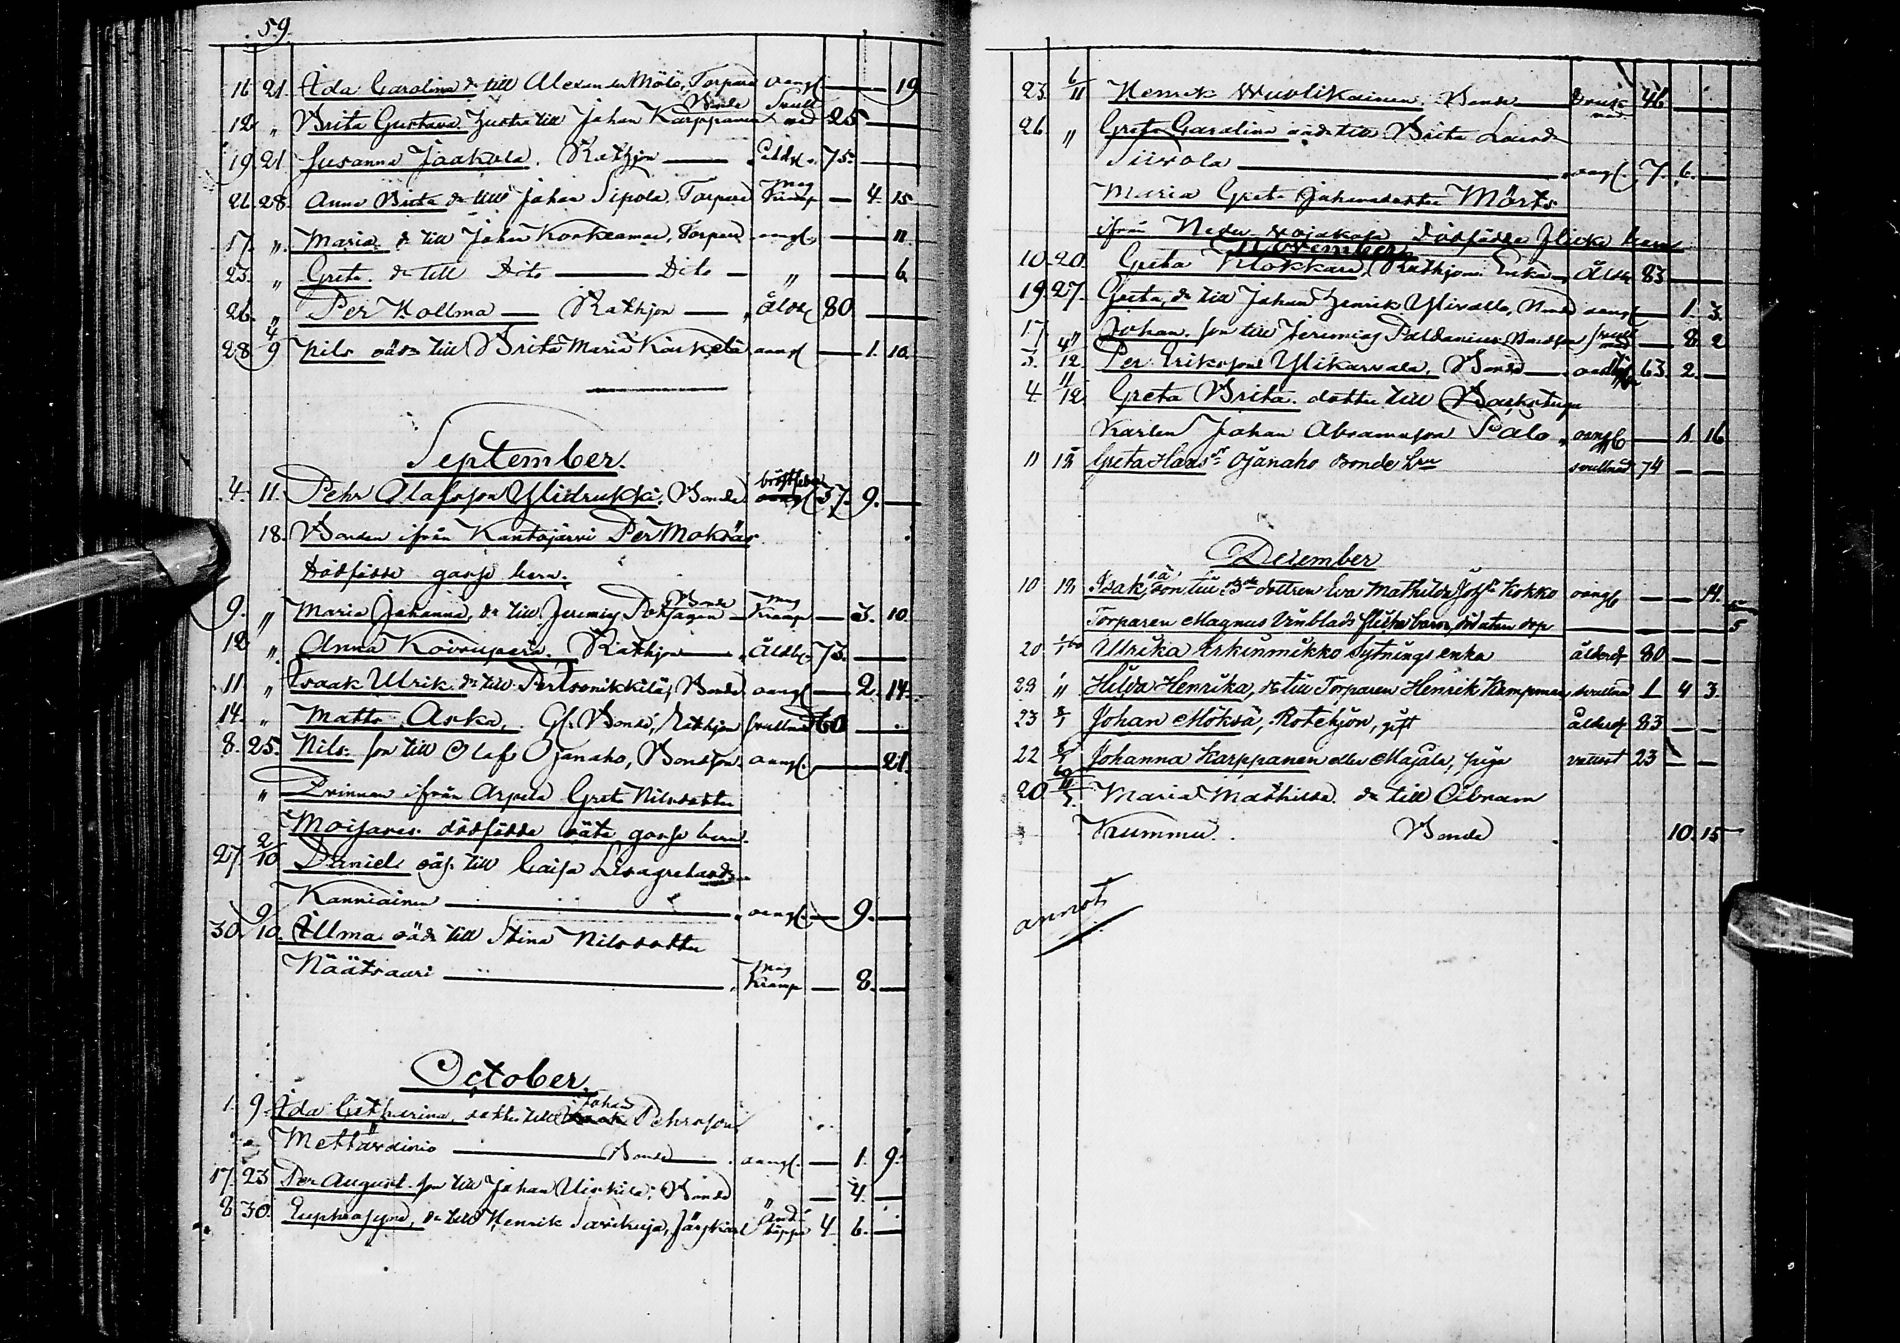 59.
16 21. Ida Carolina dr till Alexander Mölö, Torpare oangf — — 19
12 " Brita Gustava hustru till Johan Karppanen Bonde Svullnad 25 — —
19 21. Susanna Jaakola. Rothjon — Åldd. 75. — —
21. 28. Anna Brita dr till Johan Sipola, Torpare Mag Kramp — 4. 15
17. ". Maria dr till Johan Korkeamaa, Torpare oangf. — — 11
23. " Greta. dr till Dito — Dito — " — — 6
26. " Per Kollma — Rothjon — Åldd 80 — —
28 4/9 Nils oäs. till Brita Maria Kourkela oangf — 1. 10.
September.
4. 11. Pehr Olofsson Ylidrukki, Bonde bröstfeber 37. 9. —
18. Bonden ifrån Kantojärvi Per Moksäs
dödfödde gosse barn.
9. " Maria Johanna, dr till Jeremias Bonde Mag Kramp — 3. 10.
12 ". Anna Koivuperä. Rothjon — Åldd. 73. — —
11 " Isaak Ulrik. till Bonde oangf — 2. 14.
14. " Matts Aska, Gl. Bonde, Rothjon Svullnad 60 — .
8. 25. Nils. son till Olof Ojanaho, Bondeson. oangf. — — 21.
" Qvinnan ifrån Arpela Greta Nilsdotter
Moisanen dödfödde oäkta gosse barn.
27. 2/10 Daniel oäs. till Caisa Lisa
Kanniainen — oangf. — 9. —
30. 9/10. Illma oäd. till Stina Nilsdotter
Näätsaari — Mag Kramp — 8. —
October.
1. 9. Ida Catharina, dotter till Johan Pehrsson
Mettävainio — Bonde — oangf. — 1. 9.
17. 23 Per August. son till Johan Uirkilä, Bonde " — 4. —
8 30. Euphrosyne, dr till Henrik Sarikuja, Andtäppa 4 6. —
23 6/11 Henrik Wuolikainen. Bonde 46 — —
26 " Greta Carolina oäd. till Brita Lovisa
Siivola — oangf. 7. 6. —
Maria Greta Johansdotter Mörts
ifrån Neder Vojakala dödfödde flicka barn
November.
10. 20. Greta Klokkare, Rothjon Enka, Åldd 83 — —
19 27. Greta, dr till Johan Henrik Ylivalli, Bonde oangf — 1. 3.
17 " Johan. son till Jeremias Paldanius Bondeson svullnad — 8 2
3. 4/12. Per Eriksson Ylikarvala, Bonde — oangf 63. 2. —
4. 11/12. Greta Brita. dotter till Backstugu
Karlen Johan Abramsson Palo, oangf — 1 16
11 18 Greta Hansdr Ojanaho Bonde hru svullnad 74 — —
December
10 18 Isak, oä. son till dottren Eva Mathilda Kokko oangf — — 14.
Torparen Magnus Vinblads flicka barn, död utan dop — — 5/5
20 Ulrika Erkinmikko Sytnings enka ålderd 80 — —
29 " Hilda Henrika, dr till Torparen Henrik Kamponen, svullnad 1 4 3.
23 Johan Möksä, Rotehjon, gift ålderd 83 — —
22 Johanna Karppanen eller Majala, piga vattsot 23 — —
20 Maria Mathilda dr till Abram
Krummu. Bonde 10. 15
annot